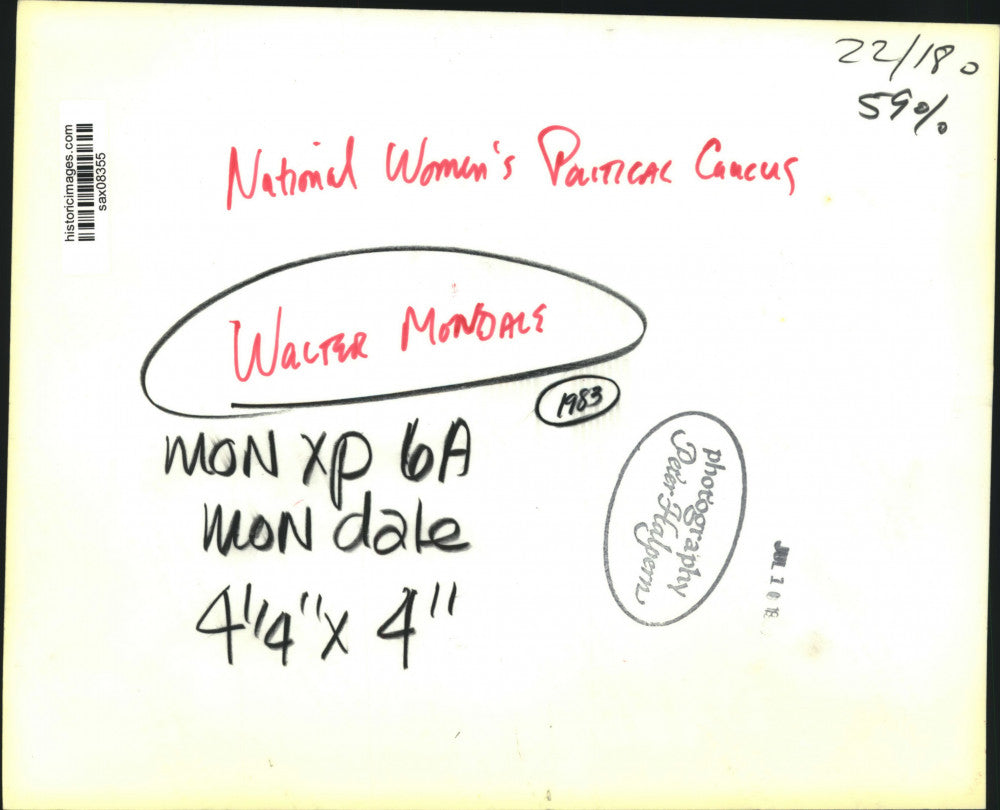 22/180
59%
historicimages.com
sax08355
National Women's Political Caucus
Walter Mondale
1983
MON XP 6A
MON dale
4 1/4" x 4"
photography
Peter Halpern